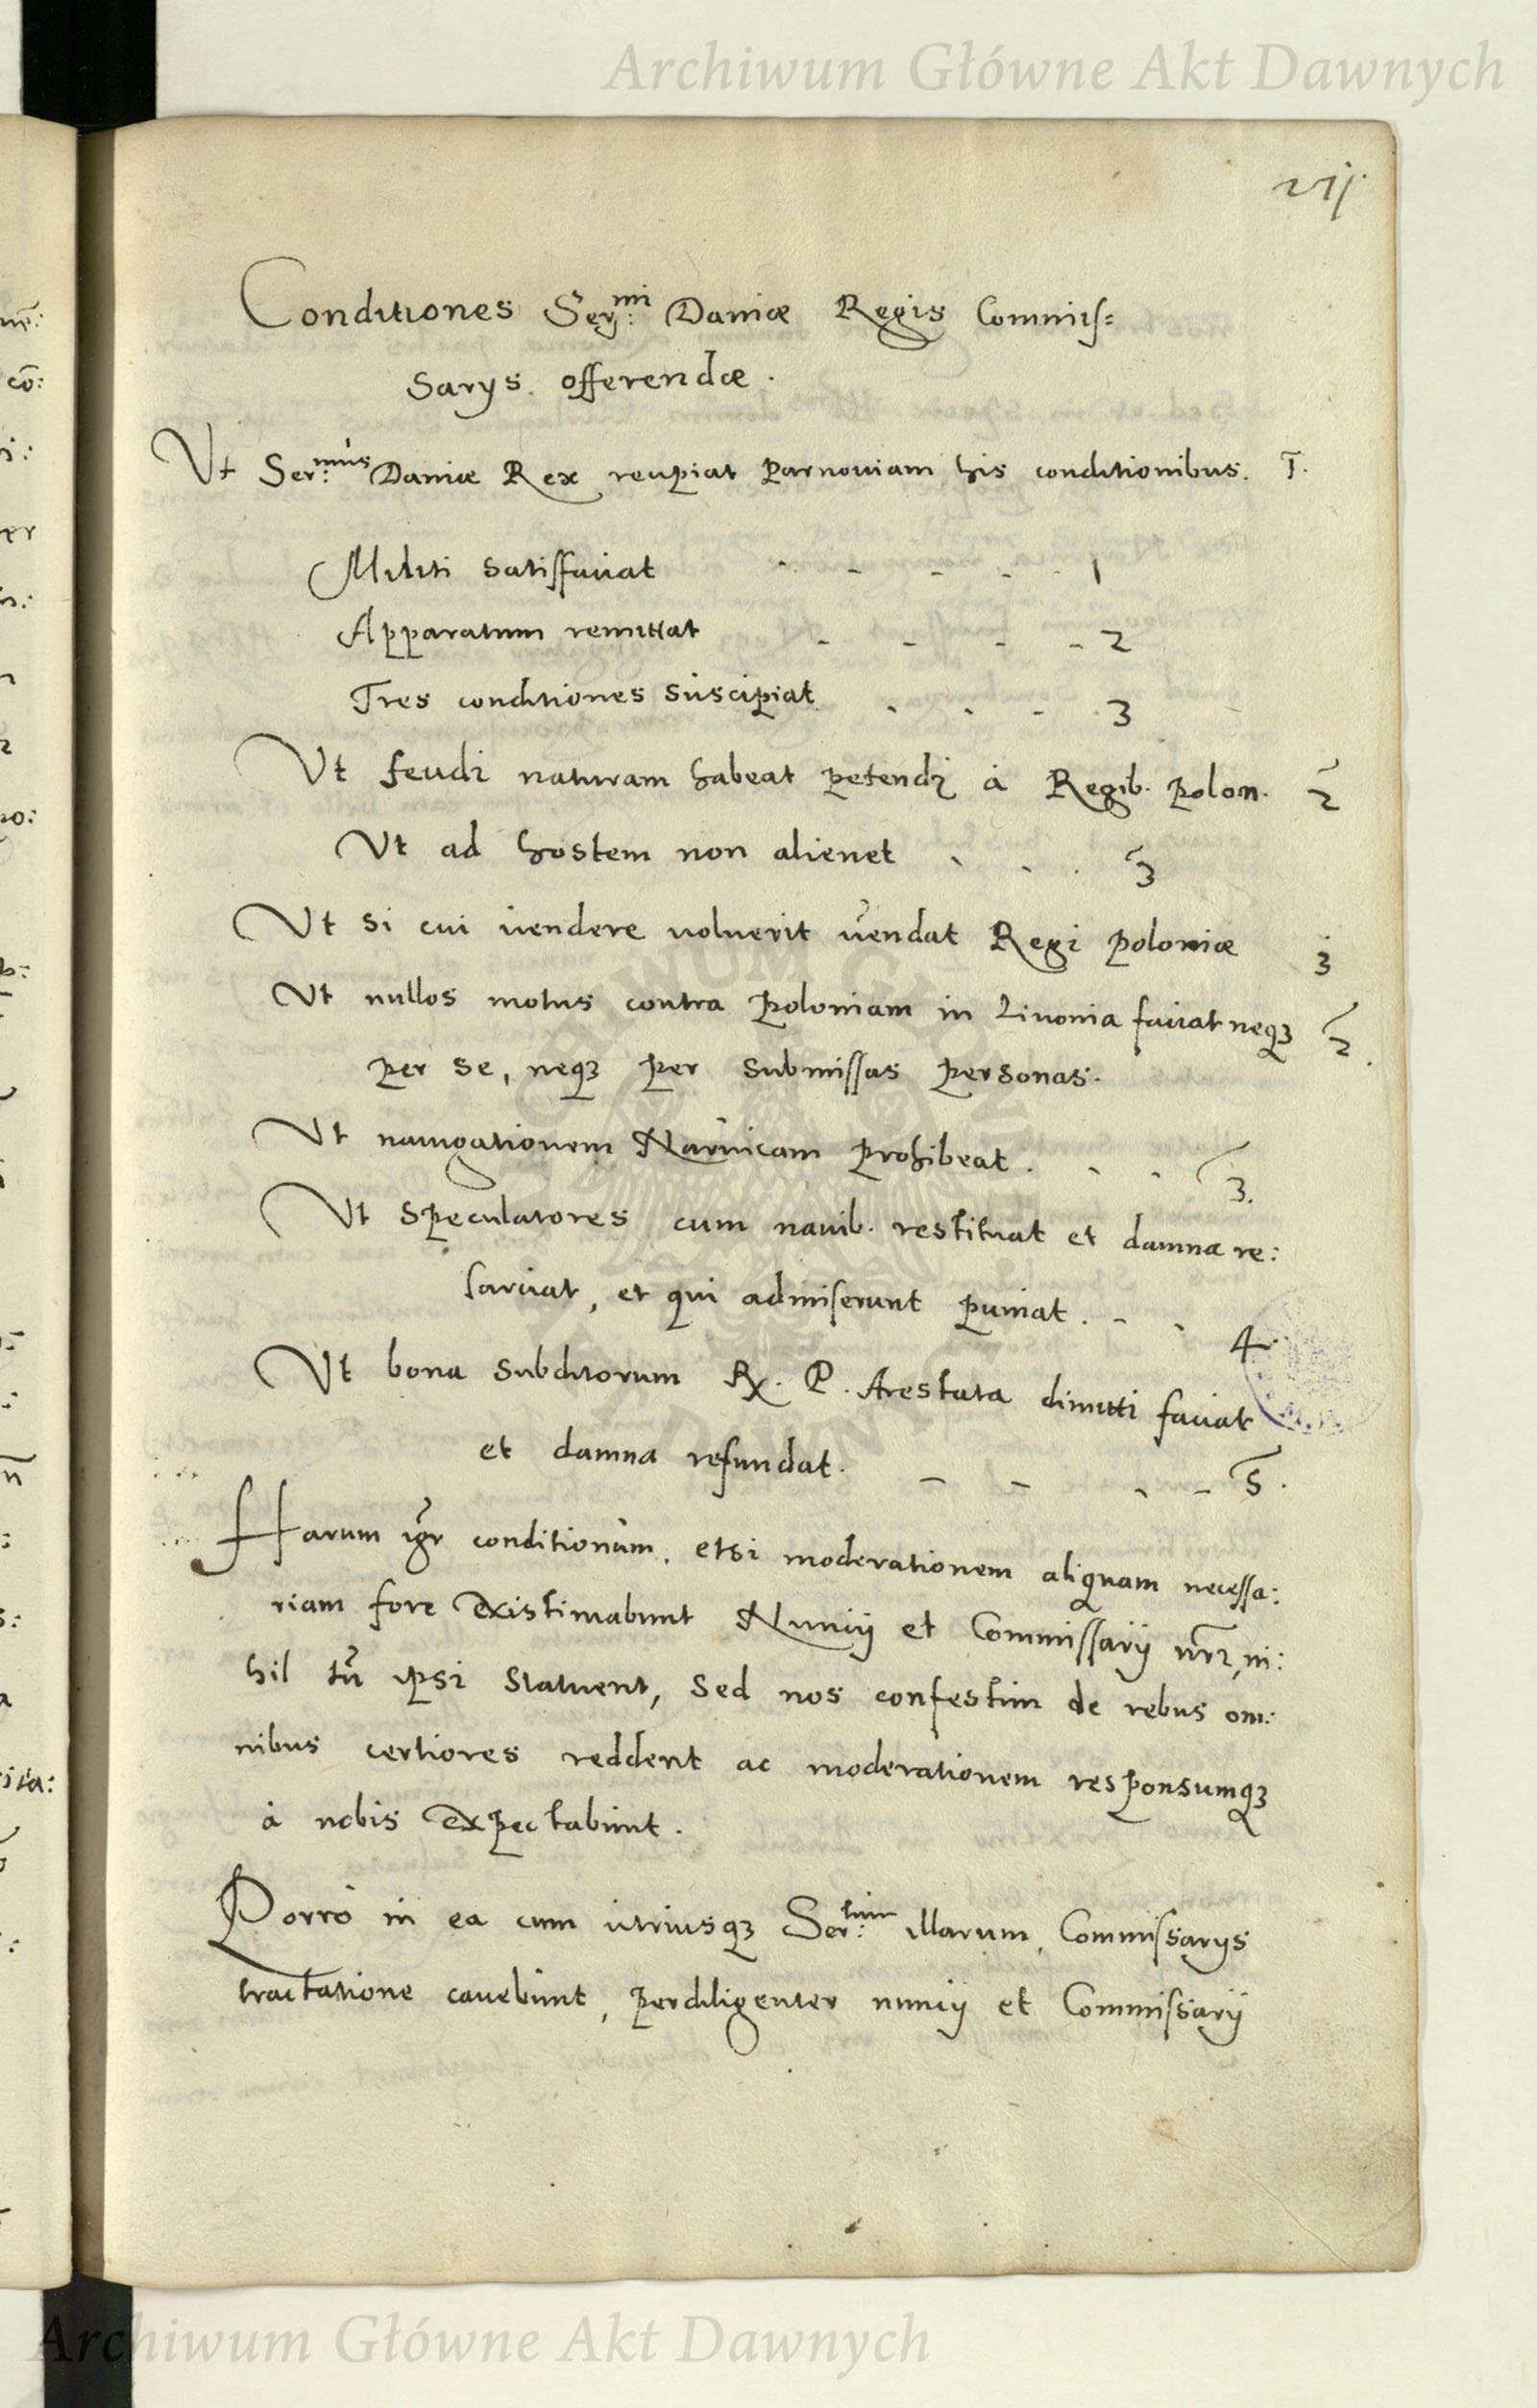 Archiwum Główne Akt Dawnych
vij.
Conditiones Ser:mi Daniæ Regis Commis=
sarys. offerendæ.
Vt Ser:mus Daniæ Rex recipiat Parnoviam his conditionibus. 1.
Militi satisfaciat - - - - - 1
Apparatum remittat - - - - 2
Tres conditiones suscipiat . . - . 3
Vt feudi naturam habeat petendi à Regib. Polon. 2
Vt ad hostem non alienet . . . 3
Vt si cui vendere voluerit vendat Regi Poloniæ 3
Vt nullos motus contra Poloniam in Livonia faciat neqꝫ 2
per se, neqꝫ per submissas personas.
Vt navigationem Narvicam prohibeat. - . 3.
Vt speculatores cum navib. restituat et damna re:
sarciat, et qui admiserunt puniat. - . 4.
Vt bona subditorum Rx. P. Arestata dimitti faciat
et damna refundat. - - - - 5.
Harum igr conditionum, etsi moderationem aliquam necessa:
riam fore existimabunt Nuncij et Commissarij nr̃i, ni:
hil tñ ipsi statuent, sed nos confestim de rebus om:
nibus certiores reddent ac moderationem responsumqꝫ
à nobis expectabunt.
Porro in ea cum utriusqꝫ Ser:tum illarum, Commissarys
tractatione cavebunt, perdiligenter nuncij et Commissarij
Archiwum Główne Akt Dawnych